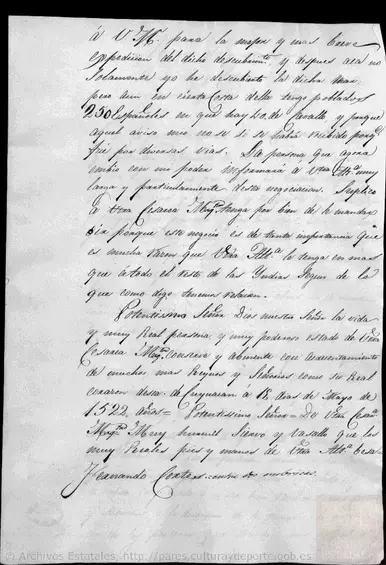 á V. M. para la mejor y mas breve
expedicion del dicho descubrimto. y despues acá no
solamente yo he descubierto la dicha mar
pero aun en cierta Costa della tengo poblados
250 Españoles en que hay 40 de caballo y porque
aquel aviso mio no se si se habrá recibido porq.
fué por diversas vias. La persona que agora
embio con mi poder informará a Vtra Alta. muy
larga y particularmente desta negociacion. Suplico
á Vtra Cesarea Magd. tenga por bien de le mandar
oir porque este negocio es de tanta importancia que
es mucha razon que Vtra Alta. le tenga en mas
que á todo el resto de las Yndias segun de lo
que como digo tenemos relacion.
Potentisimo Señor Dios nuestro Señor la vida
y muy Real persona y muy poderoso estado de Vtra
Cesarea Magd. conserve y aumente con acrecentamiento
de muchos mas Reynos y Señorios como su Real
corazon desea de Cuyuacan á 15 dias de Mayo de
1522 años = Potentisimo Señor = De Vtra Cesa.
Magd. Muy humil Siervo y Vasallo que los
muy Reales pies y manos de Vtra Alta. besa
Fernando Cortes
© Archivos Estatales, http://pares.culturaydeporte.gob.es